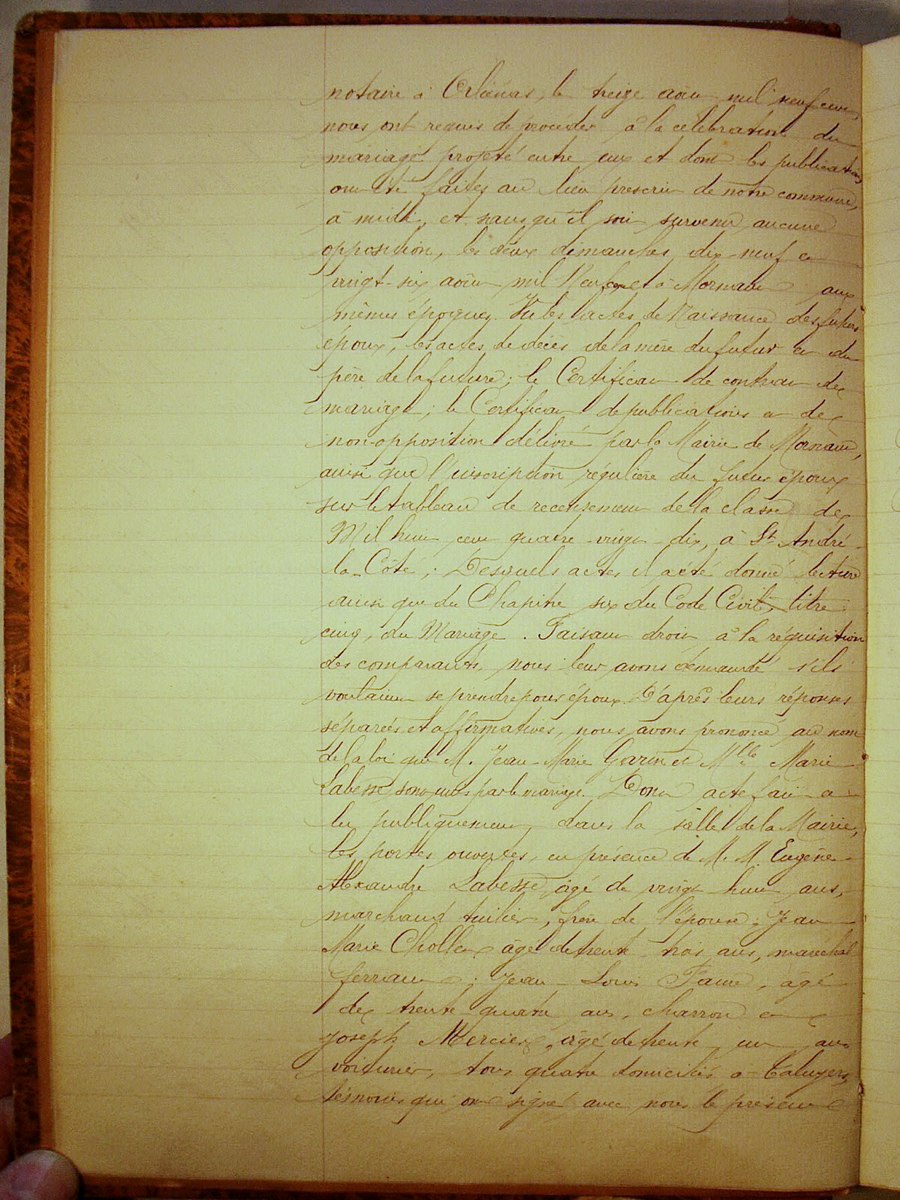 notaire à Orliénas, le treize août mil neuf cent,
nous ont requis de procéder à la célébration du
mariage projeté entre eux et dont les publications
ont été faites au lieu prescrit de notre commune,
à midi, et sans qu'il soit survenu aucune
opposition, les deux dimanches, dix-neuf et
vingt-six août mil neuf cent et à Mornant aux
mêmes époques. Vu les actes de Naissance des futurs
époux, les actes de décès de la mère du futur et du
père de la future; le Certificat de contrat de
mariage; le Certificat de publications et de
non-opposition délivré par la Mairie de Mornant,
ainsi que l'inscription régulière du futur époux
sur le tableau de recensement de la classe de
Mil huit cent quatre-vingt-dix, à St André
la-Côte; Desquels actes il a été donné lecture
ainsi que du Chapitre six du Code Civil, titre
cinq, du Mariage. Faisant droit à la réquisition
des comparants, nous leur avons demandé s'ils
voulaient se prendre pour époux. D'après leurs réponses
séparées et affirmatives, nous avons prononcé au nom
de la loi que M. Jean-Marie Garin et Mlle Marie
Labesse sont unis par le mariage. Dont acte fait et
lu publiquement, dans la salle de la Mairie,
les portes ouvertes, en présence de M.M. Eugène
Alexandre Labesse, âgé de vingt huit ans,
marchand tuilier, frère de l'épouse; Jean
Marie Chollet âgé de trente-trois ans, maréchal
ferrant; Jean-Louis Faure, âgé
de trente-quatre ans, charron et
Joseph Mercier, âgé de trente un ans
voiturier, tous quatre domiciliés à Taluyers
témoins qui ont signé avec nous le présent